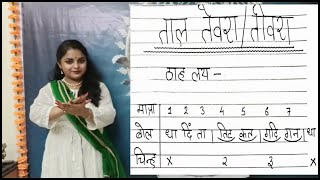 ताल तेवरा/तीवरा
ठाह लय –
मात्रा 1 2 3 4 5 6 7
बोल धा दिं ता तिट कत गदि गन धा
चिन्ह x २ ३ x